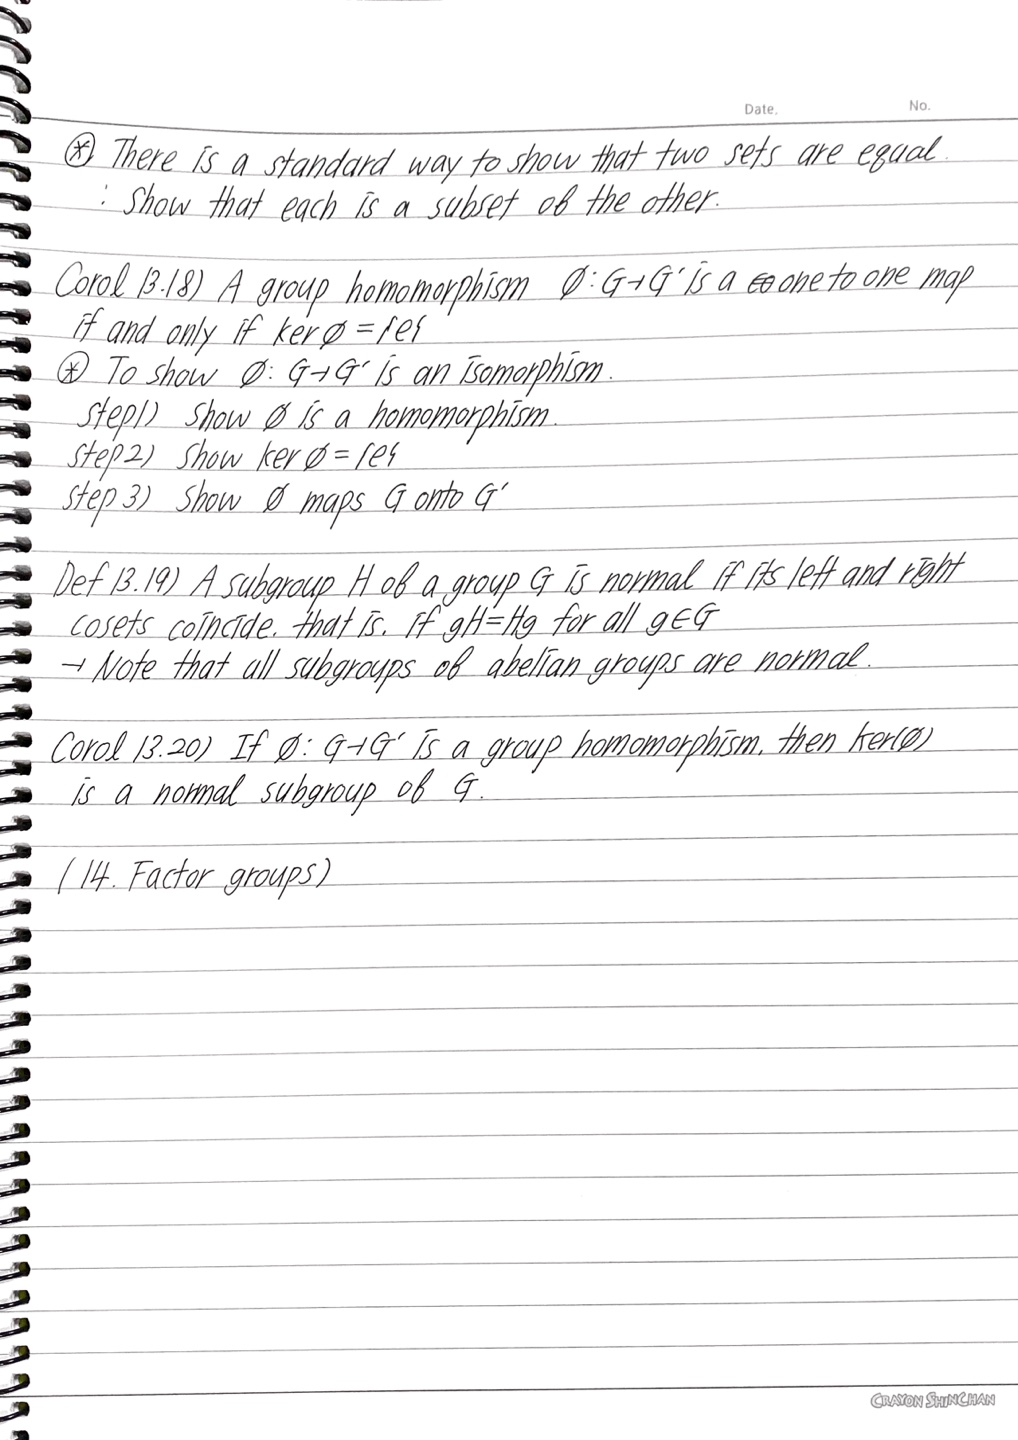 Date. No.
⊛ There is a standard way to show that two sets are equal.
: Show that each is a subset of the other.
Corol 13.18) A group homomorphism ∅: G→G' is a one to one map
if and only if ker ∅ = {e}
⊛ To show ∅: G→G' is an isomorphism.
step1) Show ∅ is a homomorphism.
step2) Show ker ∅ = {e}
step 3) Show ∅ maps G onto G'
Def 13.19) A subgroup H of a group G is normal if its left and right
cosets coincide. that is. if gH=Hg for all g∈G
→ Note that all subgroups of abelian groups are normal.
Corol 13.20) If ∅: G→G' is a group homomorphism, then ker(∅)
is a normal subgroup of G.
(14. Factor groups)
CRAYON SHINCHAN